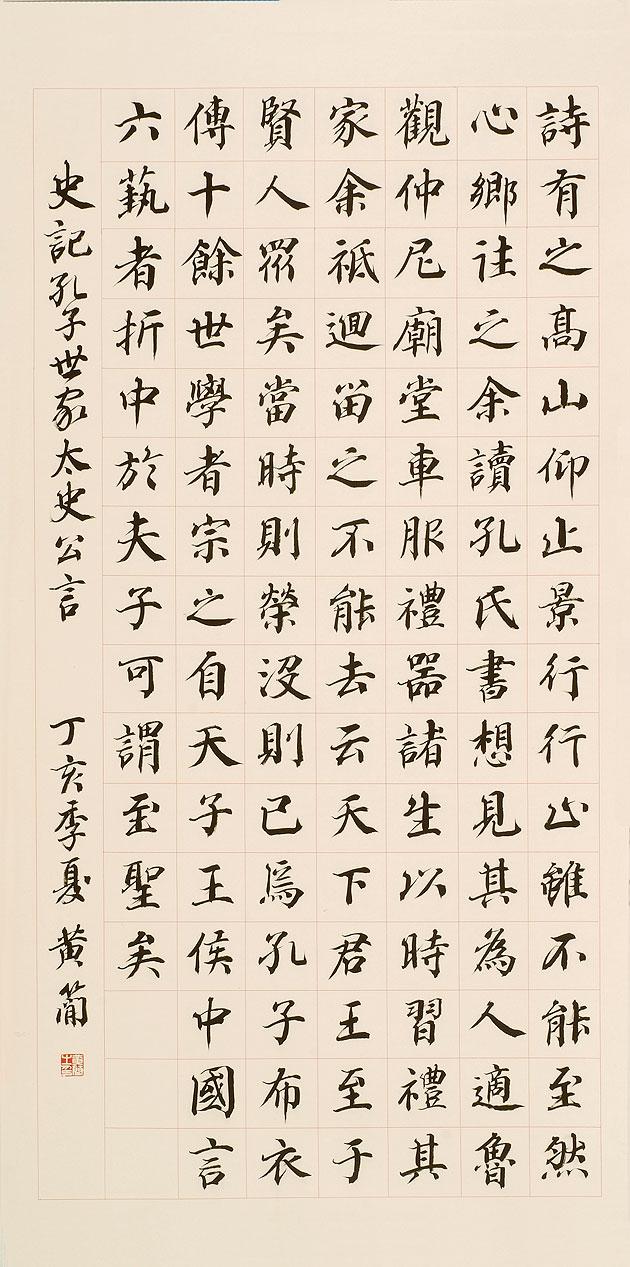 詩有之高山仰止景行行止雖不能至然
心鄉往之余讀孔氏書想見其為人適魯
觀仲尼廟堂車服禮器諸生以時習禮其
家余祗迴留之不能去云天下君王至于
賢人眾矣當時則榮沒則已焉孔子布衣
傳十餘世學者宗之自天子王侯中國言
六藝者折中於夫子可謂至聖矣
史記孔子世家太史公言 丁亥季夏 黃簡